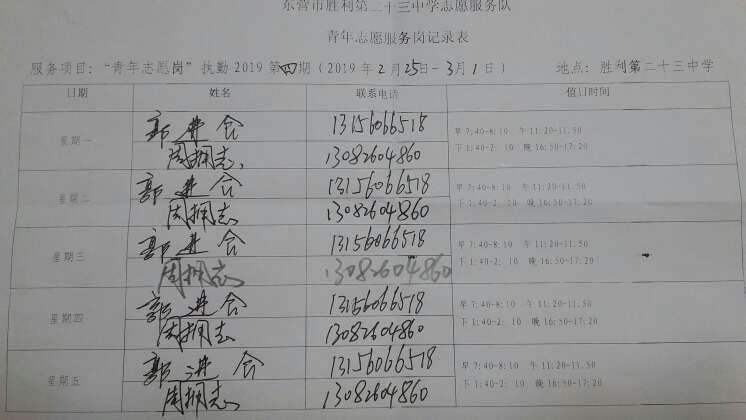 东营市胜利第二十三中学志愿服务队
青年志愿服务岗记录表
服务项目：“青年志愿岗”执勤 2019 第四期（2019 年 2 月 25日-3月1日） 地点：胜利第二十三中学
日期 姓名 联系电话 值日时间
星期一 郭进会 13156066518 早 7:40-8:10 午 11:20-11.50
周拥志 13082604860 下 1:40-2: 10 晚 16:50-17:20
星期二 郭进会 13156066518 早 7:40-8:10 午 11:20-11.50
周拥志 13082604860 下 1:40-2: 10 晚 16:50-17:20
星期三 郭进会 13156066518 早 7:40-8:10 午 11:20-11.50
周拥志 13082604860 下 1:40-2: 10 晚 16:50-17:20
星期四 郭进会 13156066518 早 7:40-8:10 午 11:20-11.50
周拥志 13082604860 下 1:40-2: 10 晚 16:50-17:20
星期五 郭进会 13156066518 早 7:40-8:10 午 11:20-11.50
周拥志 13082604860 下 1:40-2: 10 晚 16:50-17:20